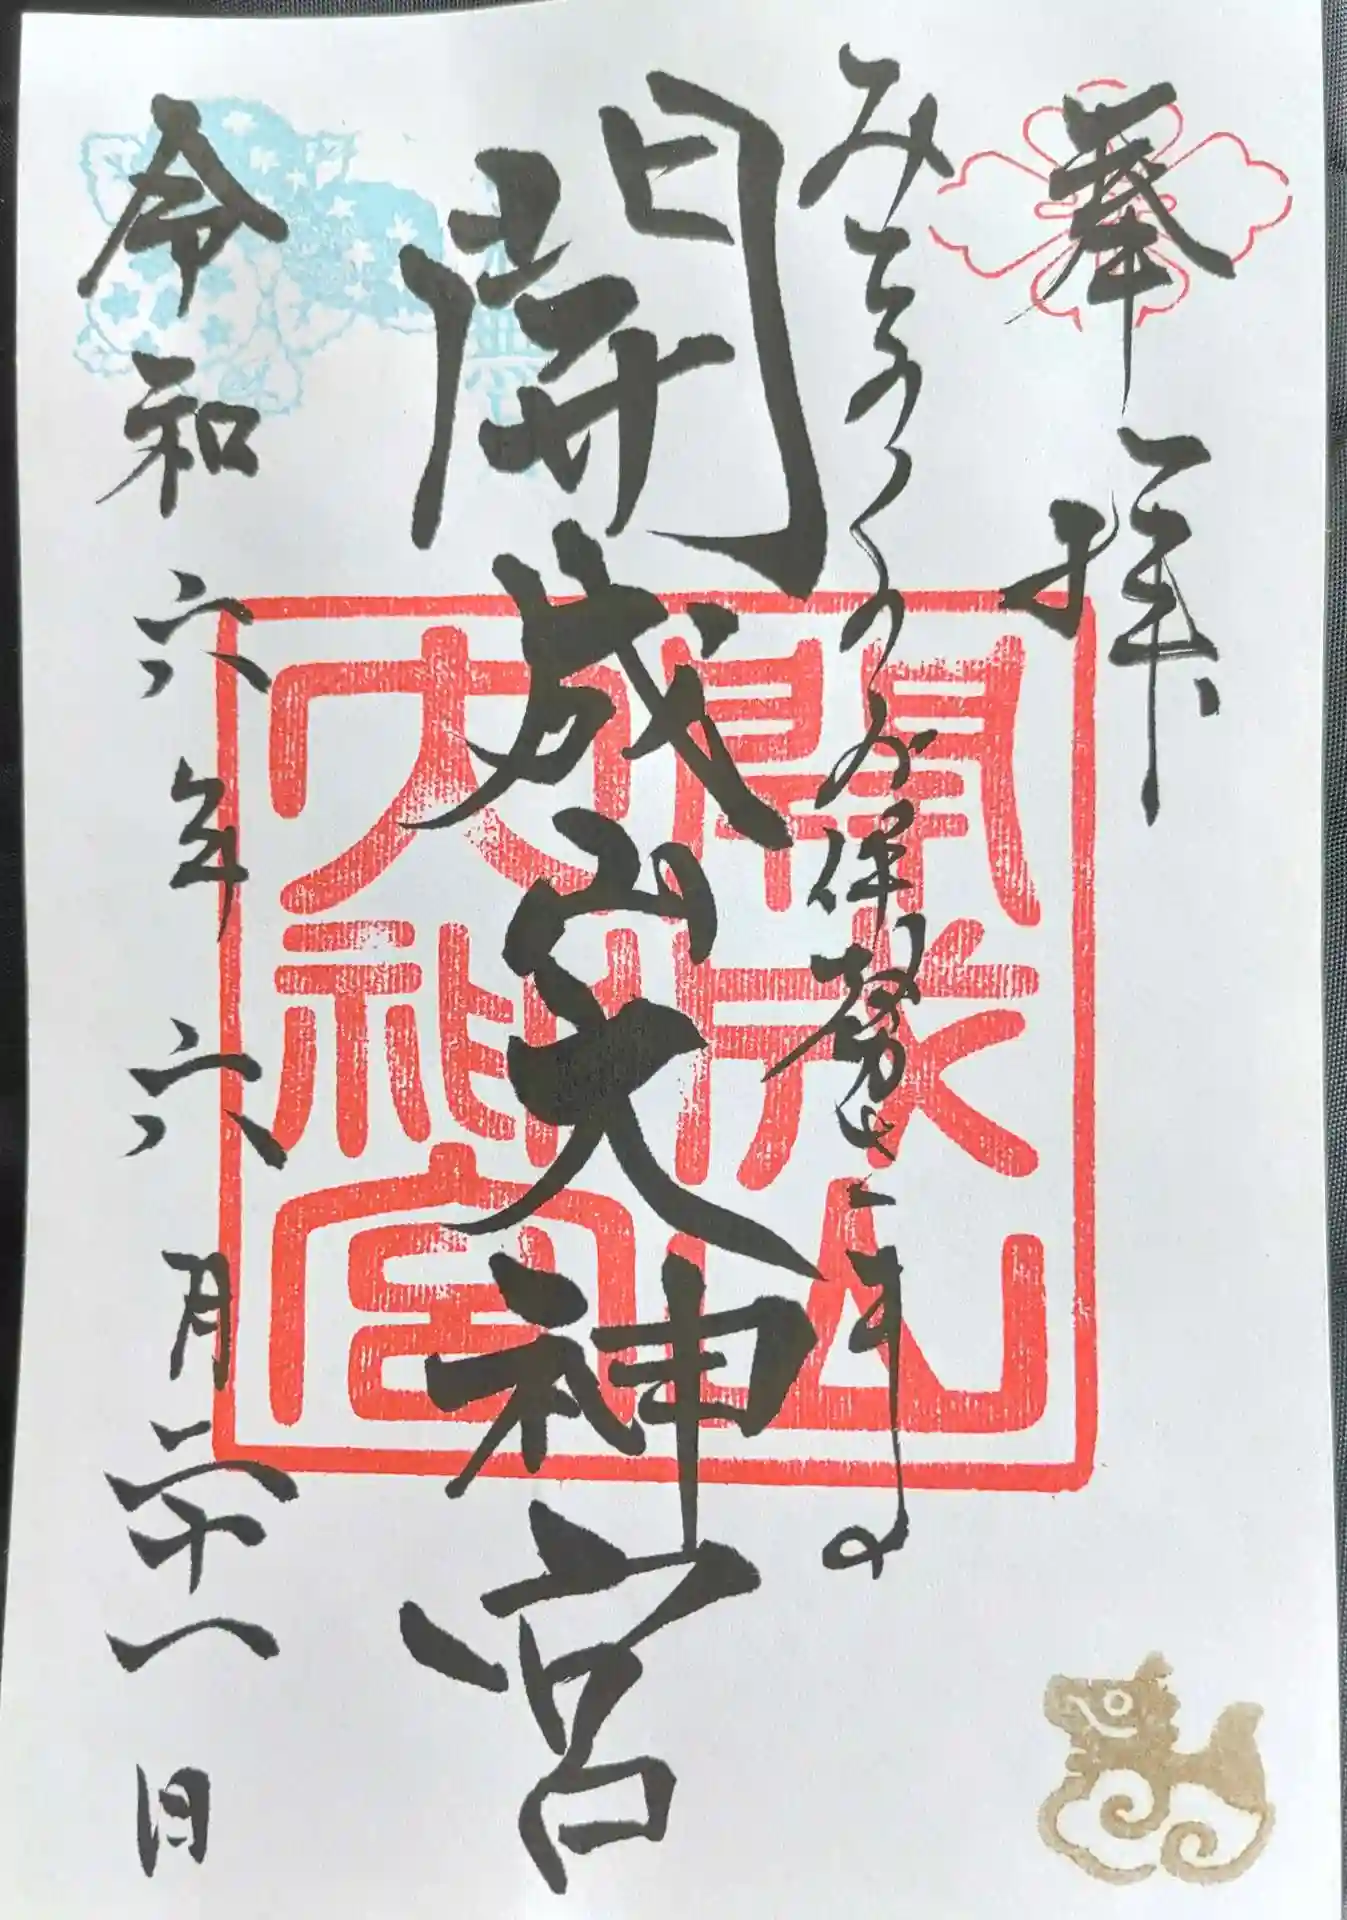 奉拝
みちのくのお伊勢さま
開成山大神宮
開成山大神宮
令和六年六月二十一日